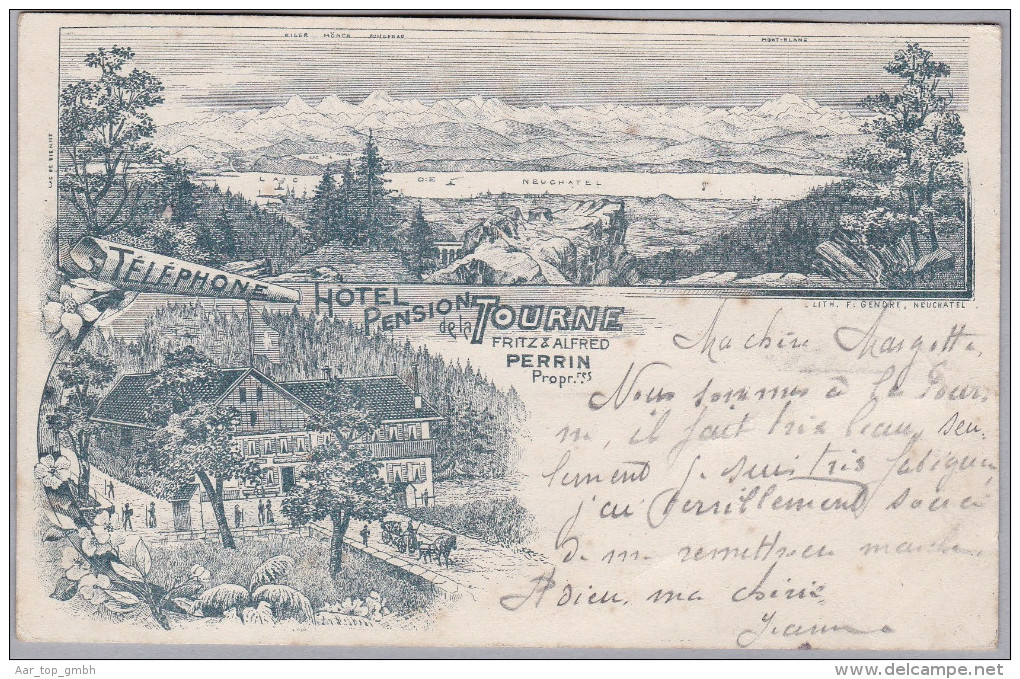 EIGER MÖNCH JUNGFRAU
MONT-BLANC
LAC DE BIENNE
LAC DE NEUCHATEL
TÉLÉPHONE
HÔTEL
PENSION
de la TOURNE
FRITZ & ALFRED
PERRIN
Propr.res
LITH. F. GENDRE, NEUCHATEL
Ma chère Margotte,
Nous sommes à la Tour-
ne, il fait très beau, seu-
lement je suis très fatiguée
j'ai terriblement
de me remettre en
Adieu, ma chérie
Jeanne
Aar_top_gmbh
www.delcampe.net